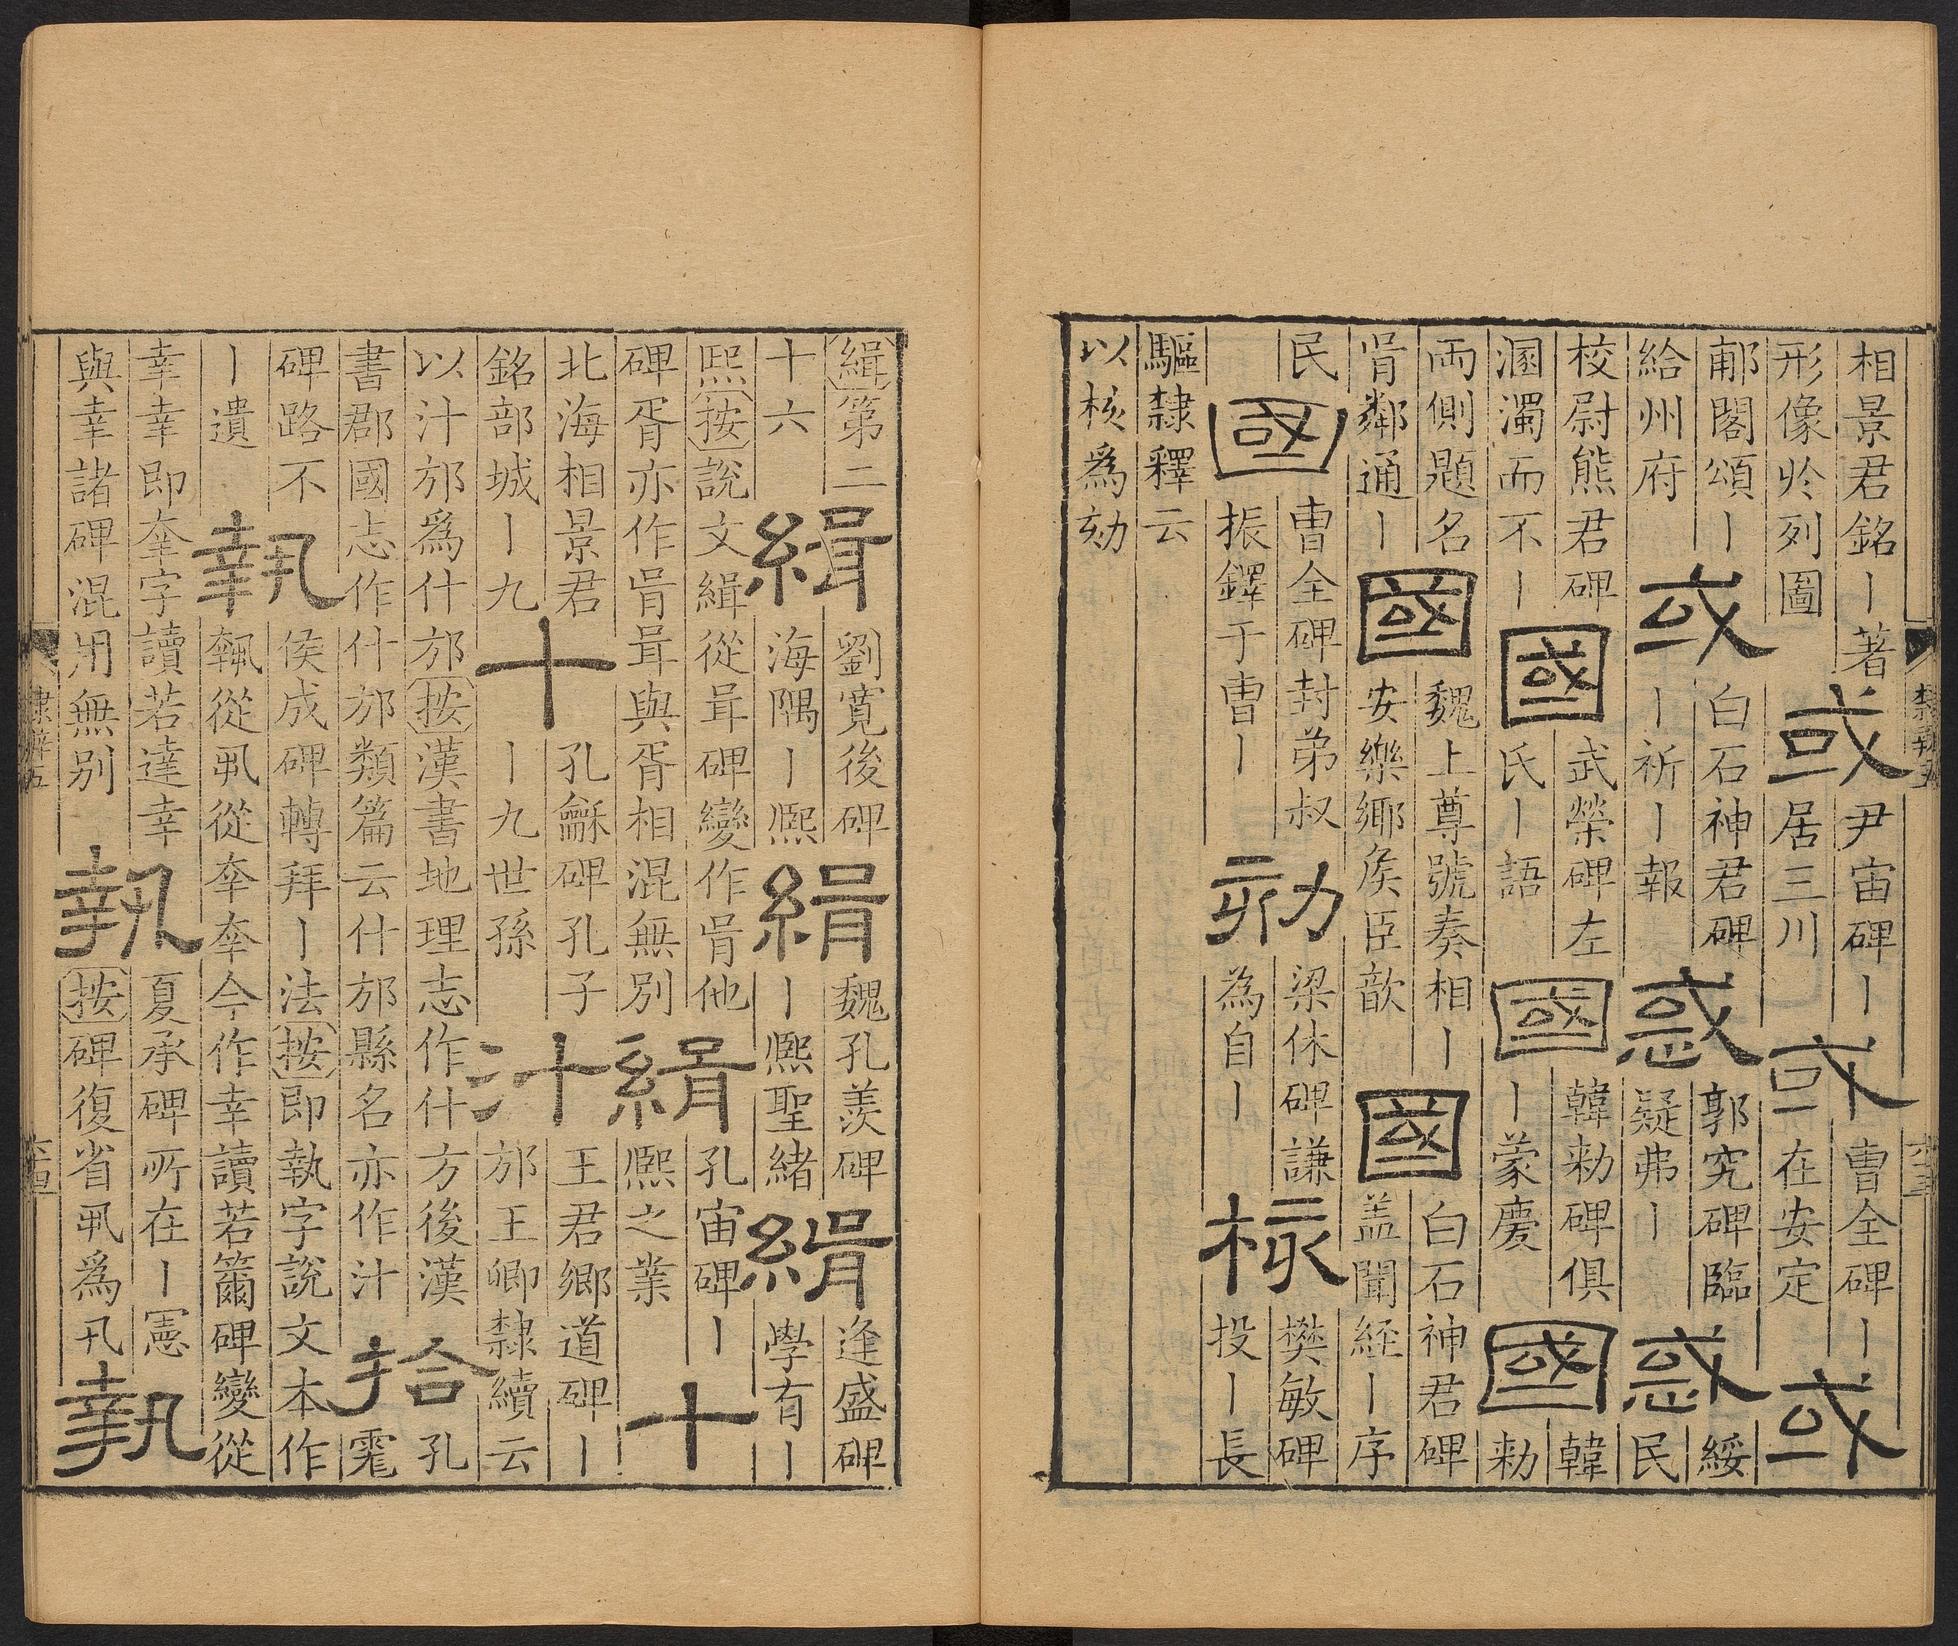 相景君銘｜著
形像於列圖
或
尹宙碑｜
居三川
或
曹全碑｜
在安定
或
郙閣頌｜
給州府
或
白石神君碑
｜祈｜報
惑
郭究碑臨
疑弗｜
惑
綏
民
校尉熊君碑
溷濁而不｜
國
武榮碑左
氏｜語
國
韓勑碑俱
｜蒙慶
國
韓
勑
兩側題名
胥鄰通｜
國
魏上尊號奏相｜
安樂鄉侯臣歆
國
白石神君碑
盖聞経｜序
民
國
曹全碑封弟叔
振鐸于曹｜
劾
梁休碑謙
為自｜
棫
樊敏碑
投｜長
驅隸釋云
以核爲劾
隸辨五
緝第二
十六
緝
劉寛後碑
海隅｜熈
緝
魏孔羨碑
｜熈聖緒
緝
逢盛碑
學有｜
熙按說文緝從咠碑變作胥他
碑胥亦作肙咠與胥相混無別
緝
孔宙碑｜
熈之業
十
北海相景君
銘部城｜九
十
孔龢碑孔子
｜九世孫
汁
王君鄉道碑｜
邡王卿隸續云
以汁邡爲什邡按漢書地理志作什方後漢
書郡國志作什邡類篇云什邡縣名亦作汁
拾
孔
雿
碑路不
｜遺
執
侯成碑轉拜｜法按即執字說文本作
𡙕從丮從㚔㚔今作幸讀若籋碑變從
幸幸即㚔字讀若達幸
與幸諸碑混用無別
執
夏承碑所在｜憲
按碑復省丮爲卂
執
隸辨五